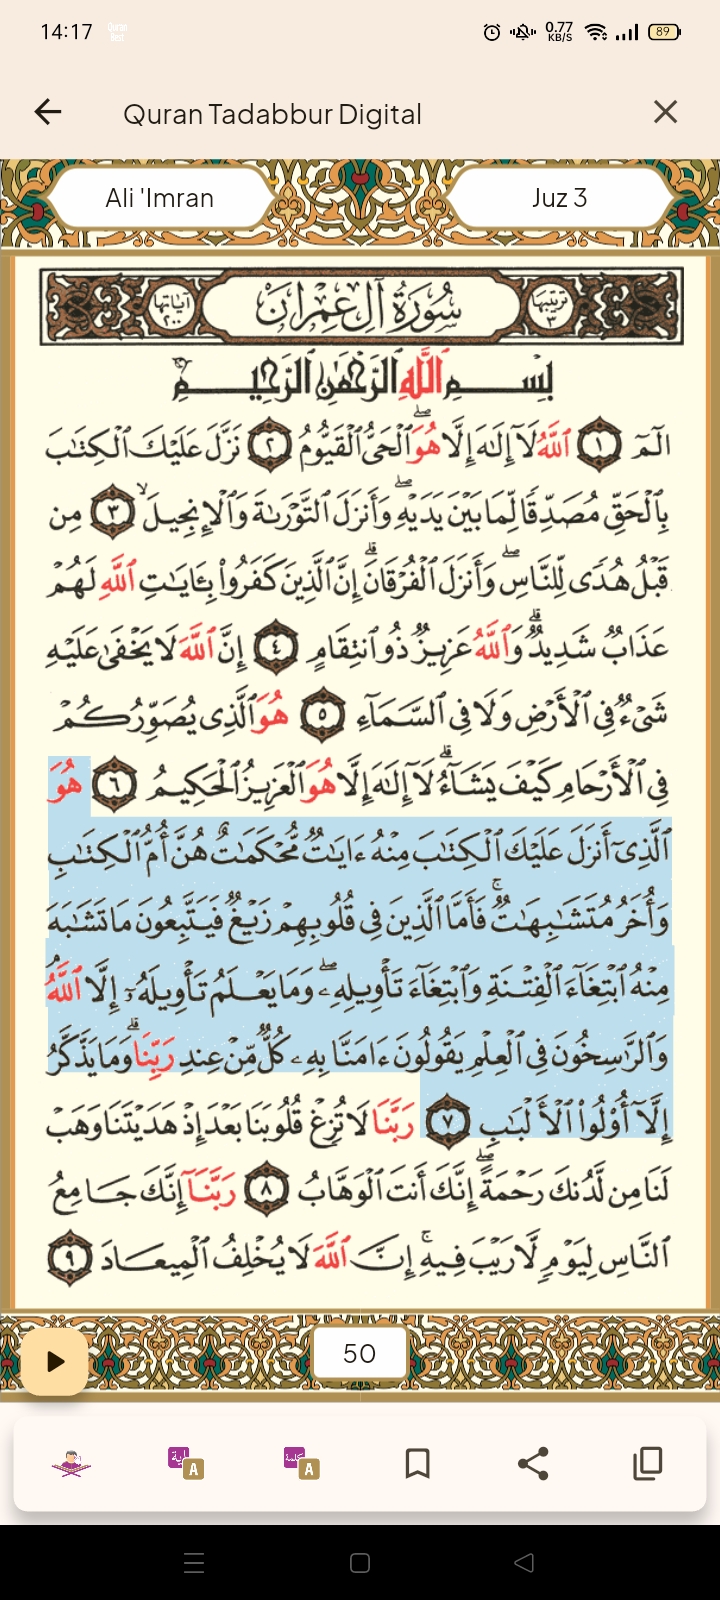 14:17
Quran Best
0.77 KB/S
89
Quran Tadabbur Digital
Ali 'Imran
Juz 3
ترتيبها ٣
سُورَةُ آلِ عِمْرَانَ
آياتها ٢٠٠
بِسْمِ ٱللَّهِ ٱلرَّحْمَٰنِ ٱلرَّحِيمِ
الٓمٓ ١ ٱللَّهُ لَآ إِلَٰهَ إِلَّا هُوَ ۖ ٱلْحَىُّ ٱلْقَيُّومُ ٢ نَزَّلَ عَلَيْكَ ٱلْكِتَٰبَ
بِٱلْحَقِّ مُصَدِّقًا لِّمَا بَيْنَ يَدَيْهِ ۖ وَأَنزَلَ ٱلتَّوْرَىٰةَ وَٱلْإِنجِيلَ ۙ ٣ مِن
قَبْلُ هُدًى لِّلنَّاسِ ۖ وَأَنزَلَ ٱلْفُرْقَانَ ۗ إِنَّ ٱلَّذِينَ كَفَرُوا۟ بِـَٔايَٰتِ ٱللَّهِ لَهُمْ
عَذَابٌ شَدِيدٌ ۗ وَٱللَّهُ عَزِيزٌ ذُو ٱنتِقَامٍ ٤ إِنَّ ٱللَّهَ لَا يَخْفَىٰ عَلَيْهِ
شَىْءٌ فِى ٱلْأَرْضِ وَلَا فِى ٱلسَّمَآءِ ٥ هُوَ ٱلَّذِى يُصَوِّرُكُمْ
فِى ٱلْأَرْحَامِ كَيْفَ يَشَآءُ ۗ لَآ إِلَٰهَ إِلَّا هُوَ ٱلْعَزِيزُ ٱلْحَكِيمُ ٦ هُوَ
ٱلَّذِىٓ أَنزَلَ عَلَيْكَ ٱلْكِتَٰبَ مِنْهُ ءَايَٰتٌ مُّحْكَمَٰتٌ هُنَّ أُمُّ ٱلْكِتَٰبِ
وَأُخَرُ مُتَشَٰبِهَٰتٌ ۚ فَأَمَّا ٱلَّذِينَ فِى قُلُوبِهِمْ زَيْغٌ فَيَتَّبِعُونَ مَا تَشَٰبَهَ
مِنْهُ ٱبْتِغَآءَ ٱلْفِتْنَةِ وَٱبْتِغَآءَ تَأْوِيلِهِۦ ۖ وَمَا يَعْلَمُ تَأْوِيلَهُۥٓ إِلَّا ٱللَّهُ ۘ
وَٱلرَّٰسِخُونَ فِى ٱلْعِلْمِ يَقُولُونَ ءَامَنَّا بِهِۦ كُلٌّ مِّنْ عِندِ رَبِّنَا ۗ وَمَا يَذَّكَّرُ
إِلَّآ أُو۟لُوا۟ ٱلْأَلْبَٰبِ ٧ رَبَّنَا لَا تُزِغْ قُلُوبَنَا بَعْدَ إِذْ هَدَيْتَنَا وَهَبْ
لَنَا مِن لَّدُنكَ رَحْمَةً ۖ إِنَّكَ أَنتَ ٱلْوَهَّابُ ٨ رَبَّنَآ إِنَّكَ جَامِعُ
ٱلنَّاسِ لِيَوْمٍ لَّا رَيْبَ فِيهِ ۚ إِنَّ ٱللَّهَ لَا يُخْلِفُ ٱلْمِيعَادَ ٩
50
آية A
كلمة A